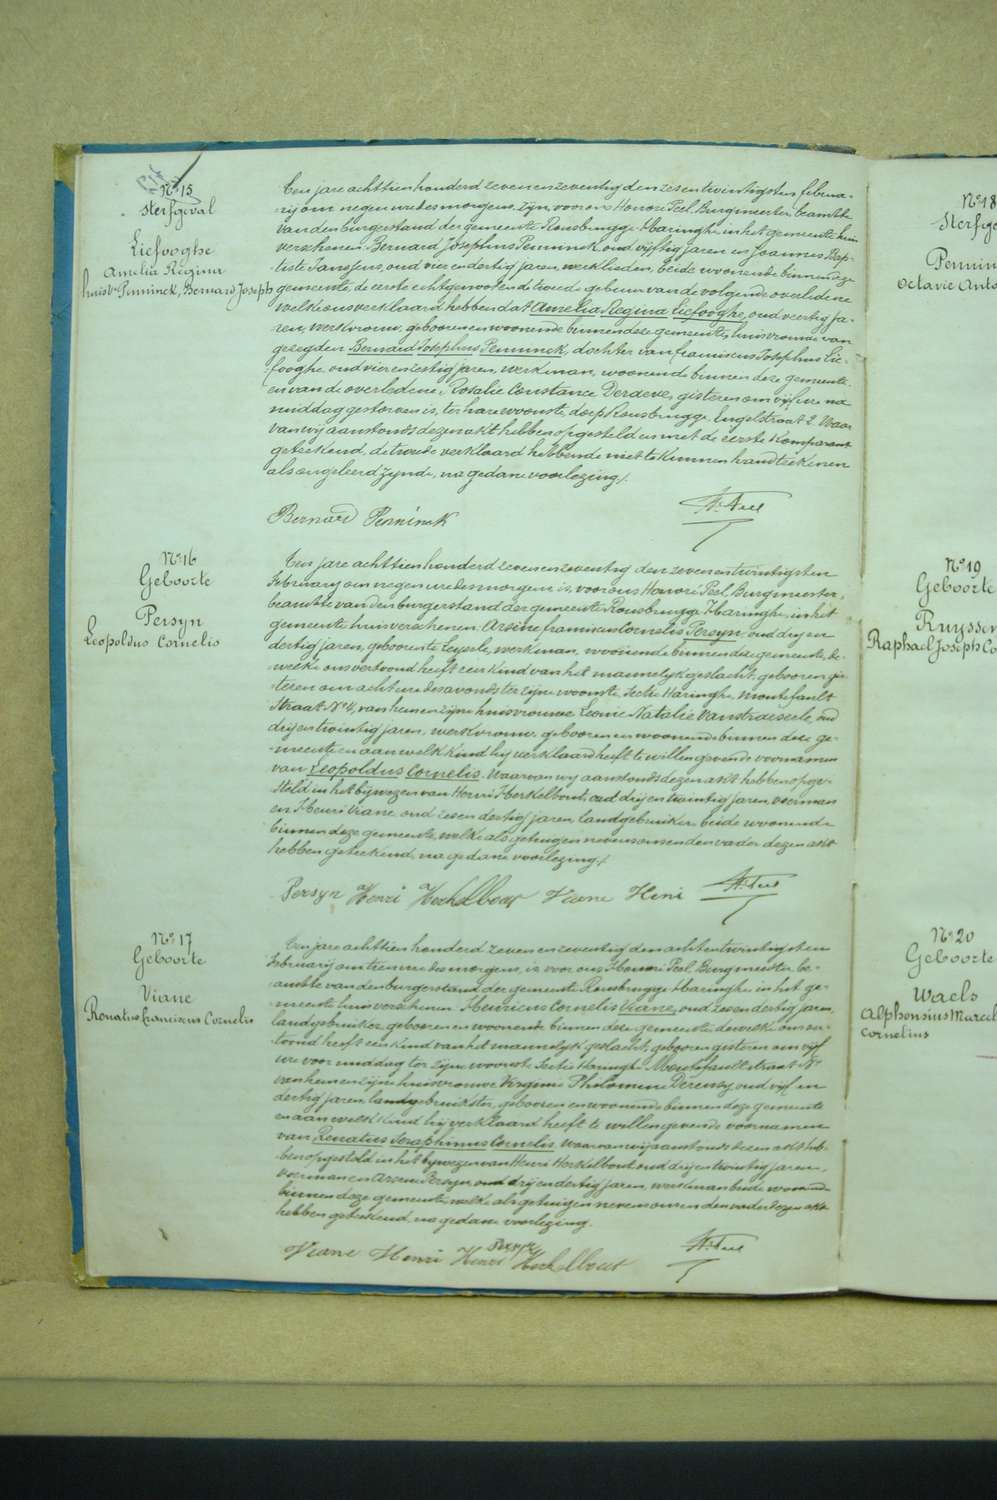 Nº 15
Sterfgeval
Liefooghe
Amelia Regina
huisv. Penninck, Bernard Joseph
Ten jare achttien honderd zeven en zeventig den zes en twintigsten februa-
rij om negen ure des morgens, zijn, voor ons Honoré Peel, Burgmeester, beambte
van den burgerstand der gemeente Rousbrugge-Haringhe, in het gemeente huis
verschenen Bernard Josephus Penninck, oud vijftig jaren en Joannes Bap-
tiste Janssens, oud vier en dertig jaren, werklieden, beide woonende binnen deze
gemeente, de eerste echtgenoot en de tweede gebuur van de volgende overledene
welke ons verklaard hebben dat Amelia Regina Liefooghe, oud veertig ja-
ren, werkvrouw, geboren en woonende binnen deze gemeente, huisvrouw van
gezegden Bernard Josephus Penninck, dochter van franciscus Josephus Lie-
fooghe, oud vier en zestig jaren, werkman, woonende binnen deze gemeente
en van de overledene Rosalie Constance Derdeve, gisteren om vijf ure na
middag gestorven is, ter hare woonste, dorp Rousbrugge, Engelstraat 2. Waar
van wij aanstonds dezen akt hebben opgesteld en met de eerste komparant
geteekend, de tweede verklaard hebbende niet te kunnen handteekenen
als ongeleerd zijnde, na gedane voorlezing.
Bernard Penninck H. Peel
Nº 16
Geboorte
Persyn
Leopoldus Cornelis
Ten jare achttien honderd zeven en zeventig den zeven en twintigsten
februarij om negen ure des morgens is, voor ons Honoré Peel, Burgmeester,
beambte van den burgerstand der gemeente Rousbrugge-Haringhe, in het
gemeente huis verschenen Arsène franciscus Cornelis Persyn, oud drij en
dertig jaren, geboren te Leysele, werkman, woonende binnen deze gemeente, de-
welke ons vertoond heeft een kind van het mannelijk geslacht, geboren gis-
teren om acht ure des avonds ter zijne woonste, Sectie Haringhe, Montefault
Straat Nº 4, van hem en zijne huisvrouwe Leonie Natalie Vanstraeseele, oud
drij en twintig jaren, werkvrouw, geboren en woonende binnen deze ge-
meente en aan welk kind hij verklaard heeft te willen geven de voornamen
van Leopoldus Cornelis. Waarvan wij aanstonds dezen akt hebben opge-
steld in het bijwezen van Henri Herkelbout, oud drij en twintig jaren, voerman
en Henri Viane, oud zes en dertig jaren, landgebruiker, beide woonende
binnen deze gemeente, welke als getuigen nevens ons en den vader dezen akt
hebben geteekend, na gedane voorlezing.
Persyn Henri Herkelbout Viane Henri H. Peel
Nº 17
Geboorte
Viane
Renatus franciscus Cornelis
Ten jare achttien honderd zeven en zeventig den acht en twintigsten
februarij om tien ure des morgens, is voor ons Honoré Peel, Burgmeester, be-
ambte van den burgerstand der gemeente Rousbrugge-Haringhe in het ge-
meente huis verschenen Henricus Cornelis Viane, oud zes en dertig jaren,
landgebruiker, geboren en woonende binnen deze gemeente dewelke ons ver-
toond heeft een kind van het mannelijk geslacht, geboren gisteren om vijf
ure voor middag ter zijne woonste Sectie Haringhe Montefaultstraat Nº
van hem en zijne huisvrouwe Virginie Philomène oud vijf en
dertig jaren landgebruikster, geboren en woonende binnen deze gemeente
en aan welk kind hij verklaard heeft te willen geven de voornamen
van Renatus Seraphinus Cornelis. Waarvan wij aanstonds dezen akt heb-
ben opgesteld in het bijwezen van Henri Herkelbout oud drij en twintig jaren,
voerman en Arsène Persyn oud drij en dertig jaren, werkman beide woonende
binnen deze gemeente, welke als getuigen nevens ons en den vader dezen akt
hebben geteekend, na gedane voorlezing.
Viane Henri Henri Persyn Herkelbout H. Peel
Nº 18
Sterfge
Pennin
Octavie Anto
Nº 19
Geboorte
Ruyssen
Raphael Joseph Co
Nº 20
Geboorte
Waels
Alphonsius Marcel
Cornelius